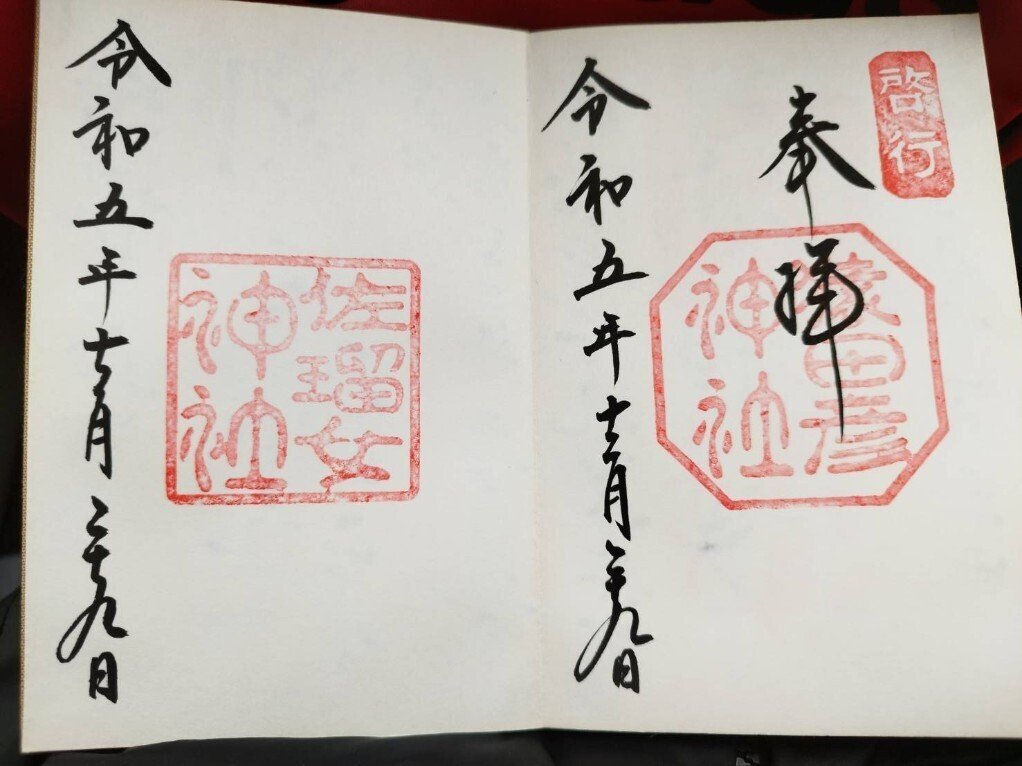 啓行
奉拝
猿田彦
神社
令和五年十二月二十九日
佐瑠女
神社
令和五年十二月二十九日